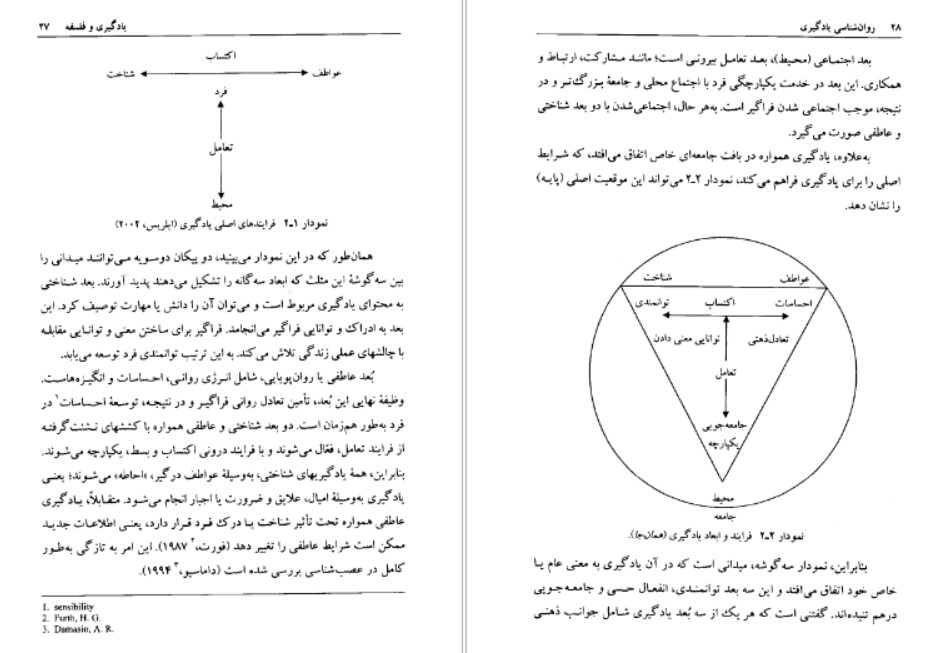 یادگیری و فلسفه ۲۷
اکتساب
عواطف
شناخت
فرد
تعامل
محیط
نمودار ۱ـ۲ فرایندهای اصلی یادگیری (ایلریس، ۲۰۰۲)
همان‌طور که در این نمودار می‌بینید، دو پیکان دوسویه می‌توانند میدانی را
بین سه گوشهٔ این مثلث که ابعاد سه‌گانه را تشکیل می‌دهند پدید آورند. بعد شناختی
به محتوای یادگیری مربوط است و می‌توان آن را دانش یا مهارت توصیف کرد. این
بعد به ادراک و توانایی فراگیر می‌انجامد. فراگیر برای ساختن معنی و توانایی مقابله
با چالشهای عملی زندگی تلاش می‌کند. به این ترتیب توانمندی فرد توسعه می‌یابد.
بُعد عاطفی یا روان‌پویایی، شامل انرژی روانی، احساسات و انگیزه‌هاست.
وظیفهٔ نهایی این بُعد، تأمین تعادل روانی فراگیر و در نتیجه، توسعهٔ احساسات۱ در
فرد به‌طور هم‌زمان است. دو بعد شناختی و عاطفی همواره با کششهای نشئت‌گرفته
از فرایند تعامل، فعّال می‌شوند و با فرایند درونی اکتساب و بسط، یکپارچه می‌شوند.
بنابراین، همهٔ یادگیریهای شناختی، به‌وسیلهٔ عواطف درگیر، «احاطه» می‌شوند؛ یعنی
یادگیری به‌وسیلهٔ امیال، علایق و ضرورت یا اجبار انجام می‌شود. متقابلاً، یادگیری
عاطفی همواره تحت تأثیر شناخت یا درک فرد قرار دارد، یعنی اطلاعات جدید
ممکن است شرایط عاطفی را تغییر دهد (فورت،۲ ۱۹۸۷). این امر به تازگی به‌طور
کامل در عصب‌شناسی بررسی شده است (داماسیو،۳ ۱۹۹۴).
1. sensibility
2. Furth, H. G.
3. Damasio, A. R.
۲۸ روان‌شناسی یادگیری
بعد اجتماعی (محیط)، بعد تعامل بیرونی است؛ مانند مشارکت، ارتباط و
همکاری. این بعد در خدمت یکپارچگی فرد با اجتماع محلی و جامعهٔ بزرگ‌تر و در
نتیجه، موجب اجتماعی شدن فراگیر است. به‌هر حال، اجتماعی‌شدن با دو بعد شناختی
و عاطفی صورت می‌گیرد.
به‌علاوه، یادگیری همواره در بافت جامعه‌ای خاص اتفاق می‌افتد، که شرایط
اصلی را برای یادگیری فراهم می‌کند، نمودار ۲ـ۲ می‌تواند این موقعیت اصلی (پایه)
را نشان دهد.
عواطف
شناخت
احساسات
اکتساب
توانمندی
تعادل‌ذهنی
توانایی معنی دادن
تعامل
جامعه‌جویی
یکپارچه
محیط
جامعه
نمودار ۲ـ۲ فرایند و ابعاد یادگیری (همان‌جا).
بنابراین، نمودار سه‌گوشه، میدانی است که در آن یادگیری به معنی عام یا
خاص خود اتفاق می‌افتد و این سه بعد توانمندی، انفعال حسی و جامعه‌جویی
درهم تنیده‌اند. گفتنی است که هر یک از سه بُعد یادگیری شامل جوانب ذهنی